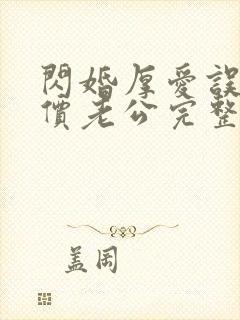 閃婚厚愛誤
價老公完整
蓋岡